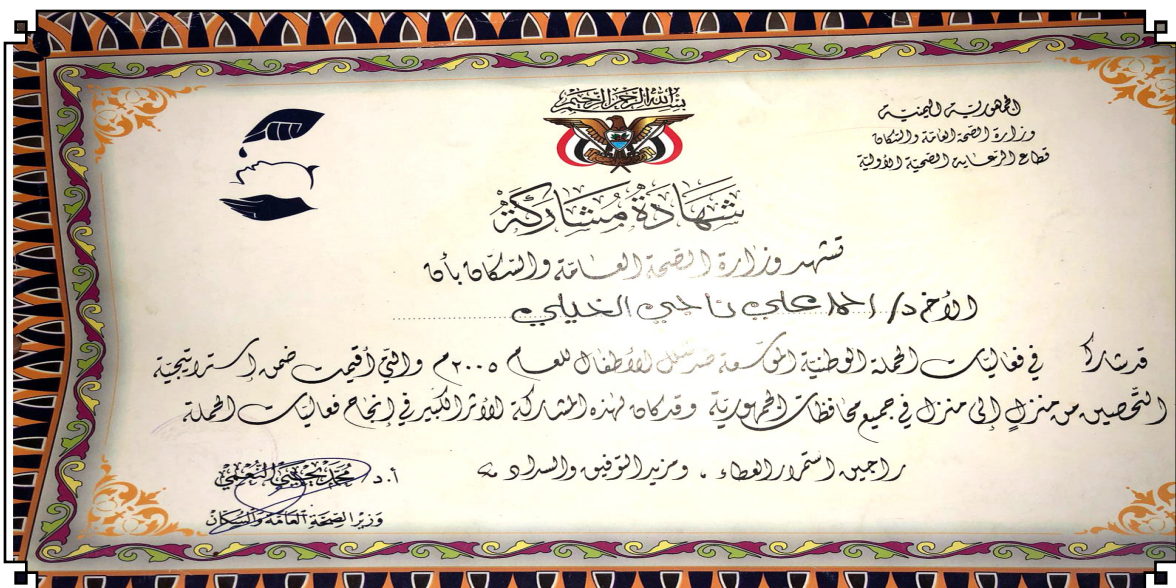 بسم الله الرحمن الرحيم
الجمهورية اليمنية
وزارة الصحة العامة والسكان
قطاع الرعاية الصحية الأولية
شهادة مشاركة
تشهد وزارة الصحة العامة والسكان بأن
الأخ د/ احمد علي ناجي الخيلي
قد شارك في فعاليات الحملة الوطنية الموسعة ضد شلل الأطفال للعام ٢٠٠٥م والتي أقيمت ضمن إستراتيجية
التحصين من منزل إلى منزل في جميع محافظات الجمهورية وقد كان لهذه المشاركة الأثر الكبير في إنجاح فعاليات الحملة
راجين استمرار العطاء، ومزيد التوفيق والسداد
أ.د محمد يحيى النعمي
وزير الصحة العامة والسكان